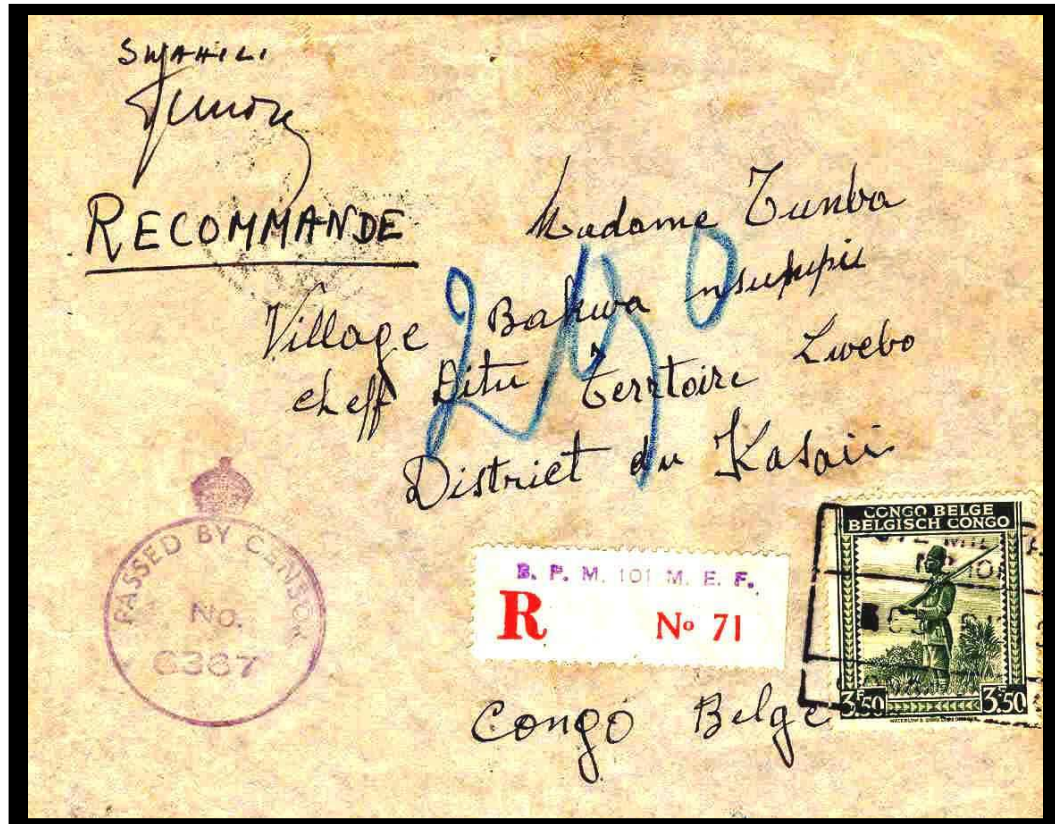 SWAHILI
RECOMMANDE
Madame Tunba
Village Bakwa nsumpu
cheff Ditu Terrtoire Luebo
District du Kasaii
PASSED BY CENSOR
No.
6387
B. P. M. 101 M. E. F.
R No 71
CONGO BELGE
BELGISCH CONGO
3F50 3F50
Congo Belge